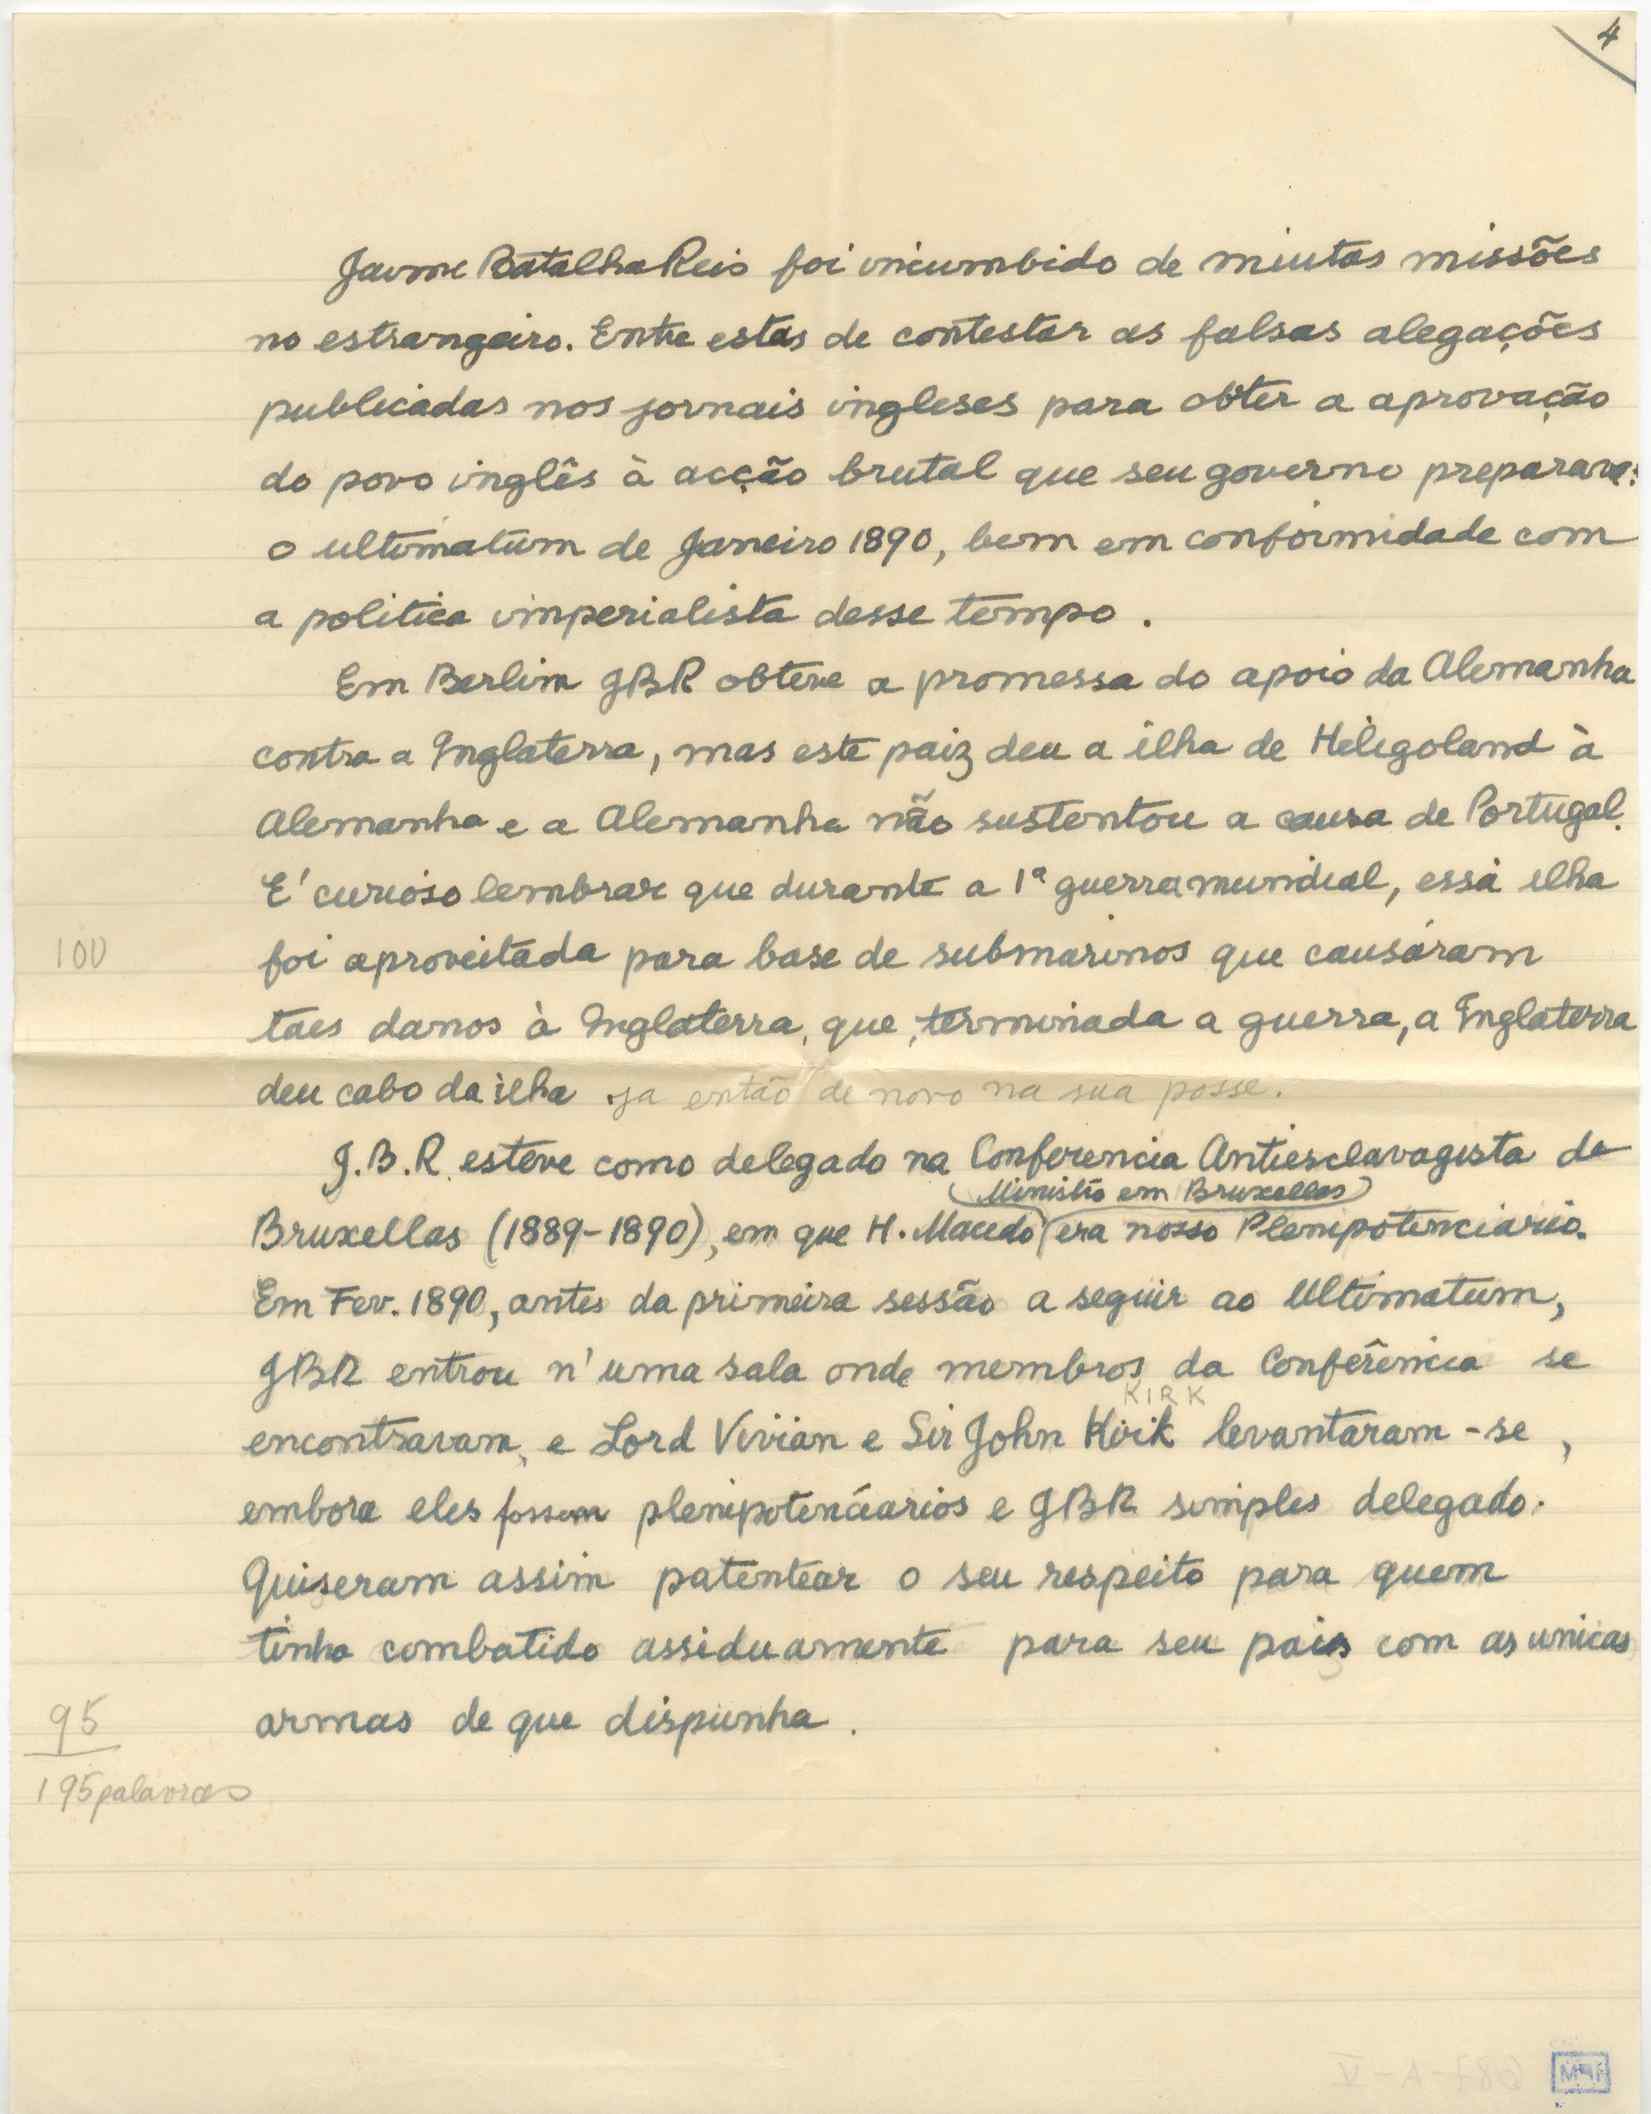 4
Jaime Batalha Reis foi incumbido de muitas missões
no estrangeiro. Entre estas de contestar as falsas alegações
publicadas nos jornais ingleses para obter a aprovação
do povo inglês à acção brutal que seu governo preparava:
o ultimatum de Janeiro 1890, bem em conformidade com
a politica imperialista desse tempo.
Em Berlim JBR obteve a promessa do apoio da Alemanha
contra a Inglaterra, mas este paiz deu a ilha de Heligoland à
Alemanha e a Alemanha não sustentou a causa de Portugal.
E' curioso lembrar que durante a 1ª guerra mundial, essa ilha
100
foi aproveitada para base de submarinos que causáram
taes danos à Inglaterra, que, terminada a guerra, a Inglaterra
deu cabo da ilha ja então de novo na sua posse.
J.B.R. esteve como delegado na Conferencia Antiesclavagista de
(Ministro em Bruxellas)
Bruxellas (1889-1890), em que H. Macedo era nosso Plenipotenciario.
Em Fev. 1890, antes da primeira sessão a seguir ao Ultimatum,
JBR entrou n'uma sala onde membros da Conferência se
KIRK
encontravam, e Lord Vivian e Sir John Kirk levantaram-se,
embora eles fossem plenipotenciarios e JBR simples delegado.
Quiseram assim patentear o seu respeito para quem
tinha combatido assiduamente para seu pais com as unicas
95
armas de que dispunha.
195 palavras